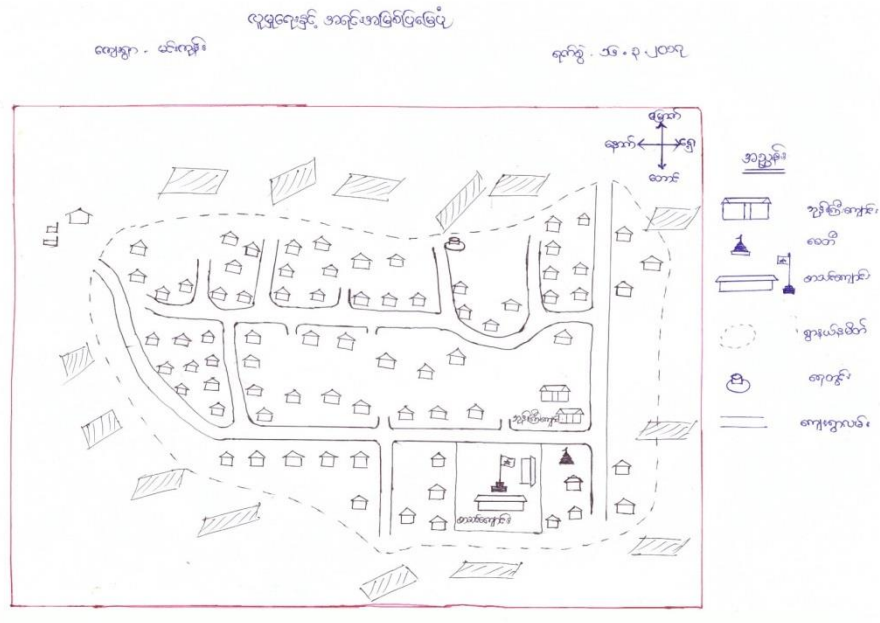 လူမှုရေးနှင့် အရင်းအမြစ်ပြမြေပုံ
ကျေးရွာ - မင်းကုန်း
ရက်စွဲ - ၁၆.၃.၂၀၁၇
မြောက်
နောက် ရှေ့
တောင်
အညွှန်း
ဘုန်းကြီးကျောင်း
စေတီ
စာသင်ကျောင်း
ရွာနယ်နမိတ်
ရေတွင်း
ကျေးရွာလမ်း
ဘုန်းကြီးကျောင်း
စာသင်ကျောင်း